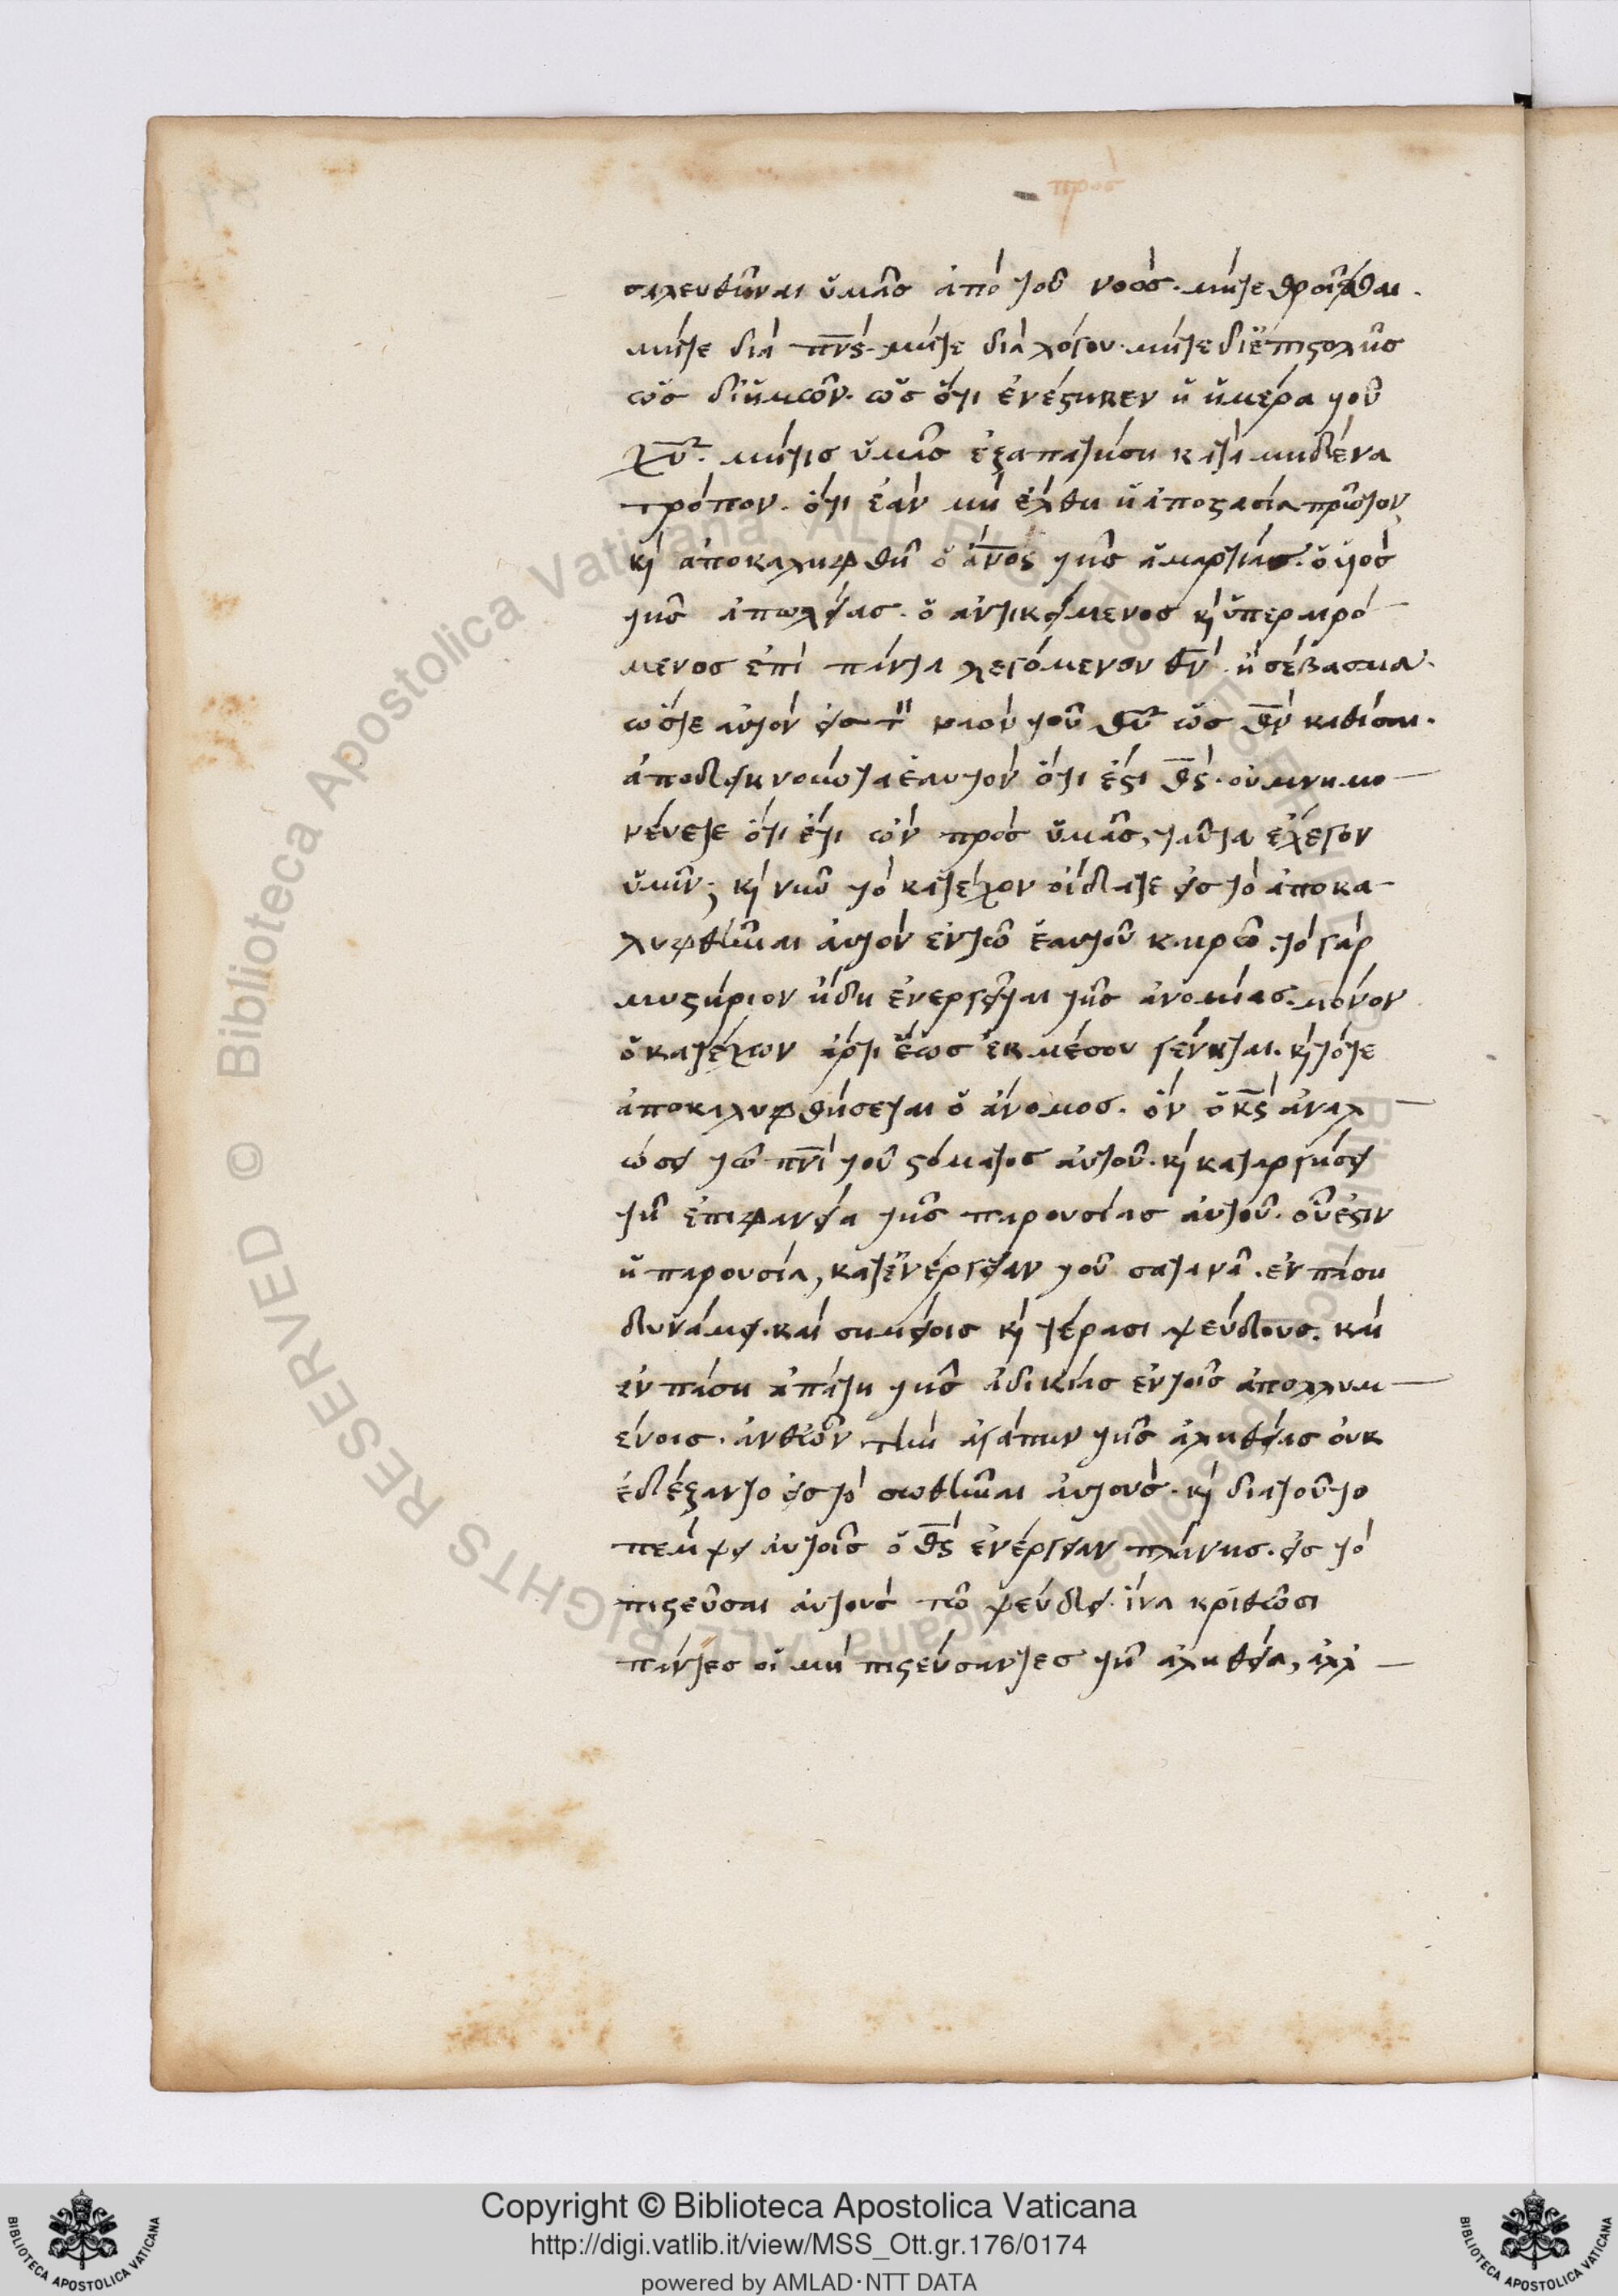 προσ
σαλευθῆναι ὑμᾶσ ἀπὸ τοῦ νοόσ· μήτε θροῆσθαι·
μήτε διὰ πν̅ς· μήτε διὰ λόγου· μήτε δι' ἐπιστολῆσ
ὡσ δι' ἡμῶν· ὡσ ὅτι ἐνέστηκεν ἡ ἡμέρα τοῦ
χυ̅· μήτισ ὑμᾶσ ἐξαπατήση κατὰ μηδένα
τρόπον· ὅτι ἐὰν μὴ ἔλθη ἡ ἀποστασία πρῶτον
κὶ ἀποκαλυφθῆ ὁ ἄν̅ος τῆσ ἁμαρτίασ· ὁ υἱὸσ
τῆσ ἀπωλείας· ὁ ἀντικείμενοσ κὶ ὑπεραιρό
μενοσ ἐπὶ πάντα λεγόμενον θν̅· ἢ σέβασμα·
ὥστε αὐτὸν εἰσ τὸν ναὸν τοῦ θυ̅ ὡσ θν̅ καθίσαι·
ἀποδεικνύοντα ἑαυτὸν ὅτι ἐστὶ θς̅· οὐ μνημο
νέυετε ὅτι ἔτι ὢν πρὸσ ὑμᾶσ, ταῦτα ἔλεγον
ὑμῖν; κὶ νῦν τὸ κατέχον οἴδατε εἰσ τὸ ἀποκα
λυφθῆναι ἀυτὸν ἐν τῶ ἑαυτοῦ καιρῶ· τὸ γὰρ
μυστήριον ἤδη ἐνεργεῖται τῆσ ἀνομίασ· μόνον
ὁ κατέχων ἄρτι ἕωσ ἐκ μέσου γένηται· κὶ τότε
ἀποκαλυφθήσεται ὁ ἄνομοσ· ὃν ὁ κς̅ ἀναλ
ώσει τῶ πν̅ι τοῦ στόματοσ ἀυτοῦ· κὶ καταργήσει
τῆ ἐπιφανεία τῆσ παρουσίασ ἀυτοῦ· οὗ ἐστιν
ἡ παρουσία, κατ' ἐνέργειαν τοῦ σατανᾶ· ἐν πάση
δυνάμει· καὶ σημείοις κὶ τέρασι ψεύδουσ· καὶ
ἐν πάση ἀπάτη τῆσ ἀδικίασ ἐν τοῖσ ἀπολλυμ
ένοισ· ἀνθ' ὧν τὴν ἀγάπην τῆσ ἀληθείασ οὐκ
ἐδέξαντο εἰσ τὸ σωθῆναι ἀυτούσ· κὶ διατοῦτο
πέμψει ἀυτοῖσ ὁ θς̅ ἐνέργειαν πλάνησ· εἰσ τὸ
πιστεῦσαι ἀυτοὺσ τῶ ψεύδει· ἵνα κριθῶσι
πάντεσ οἱ μὴ πιστεύσαντεσ τῆ ἀληθεία, ἀλλ
© Biblioteca Apostolica Vaticana, ALL RIGHTS RESERVED
Copyright © Biblioteca Apostolica Vaticana
http://digi.vatlib.it/view/MSS_Ott.gr.176/0174
powered by AMLAD·NTT DATA
BIBLIOTECA APOSTOLICA VATICANA
BIBLIOTECA APOSTOLICA VATICANA